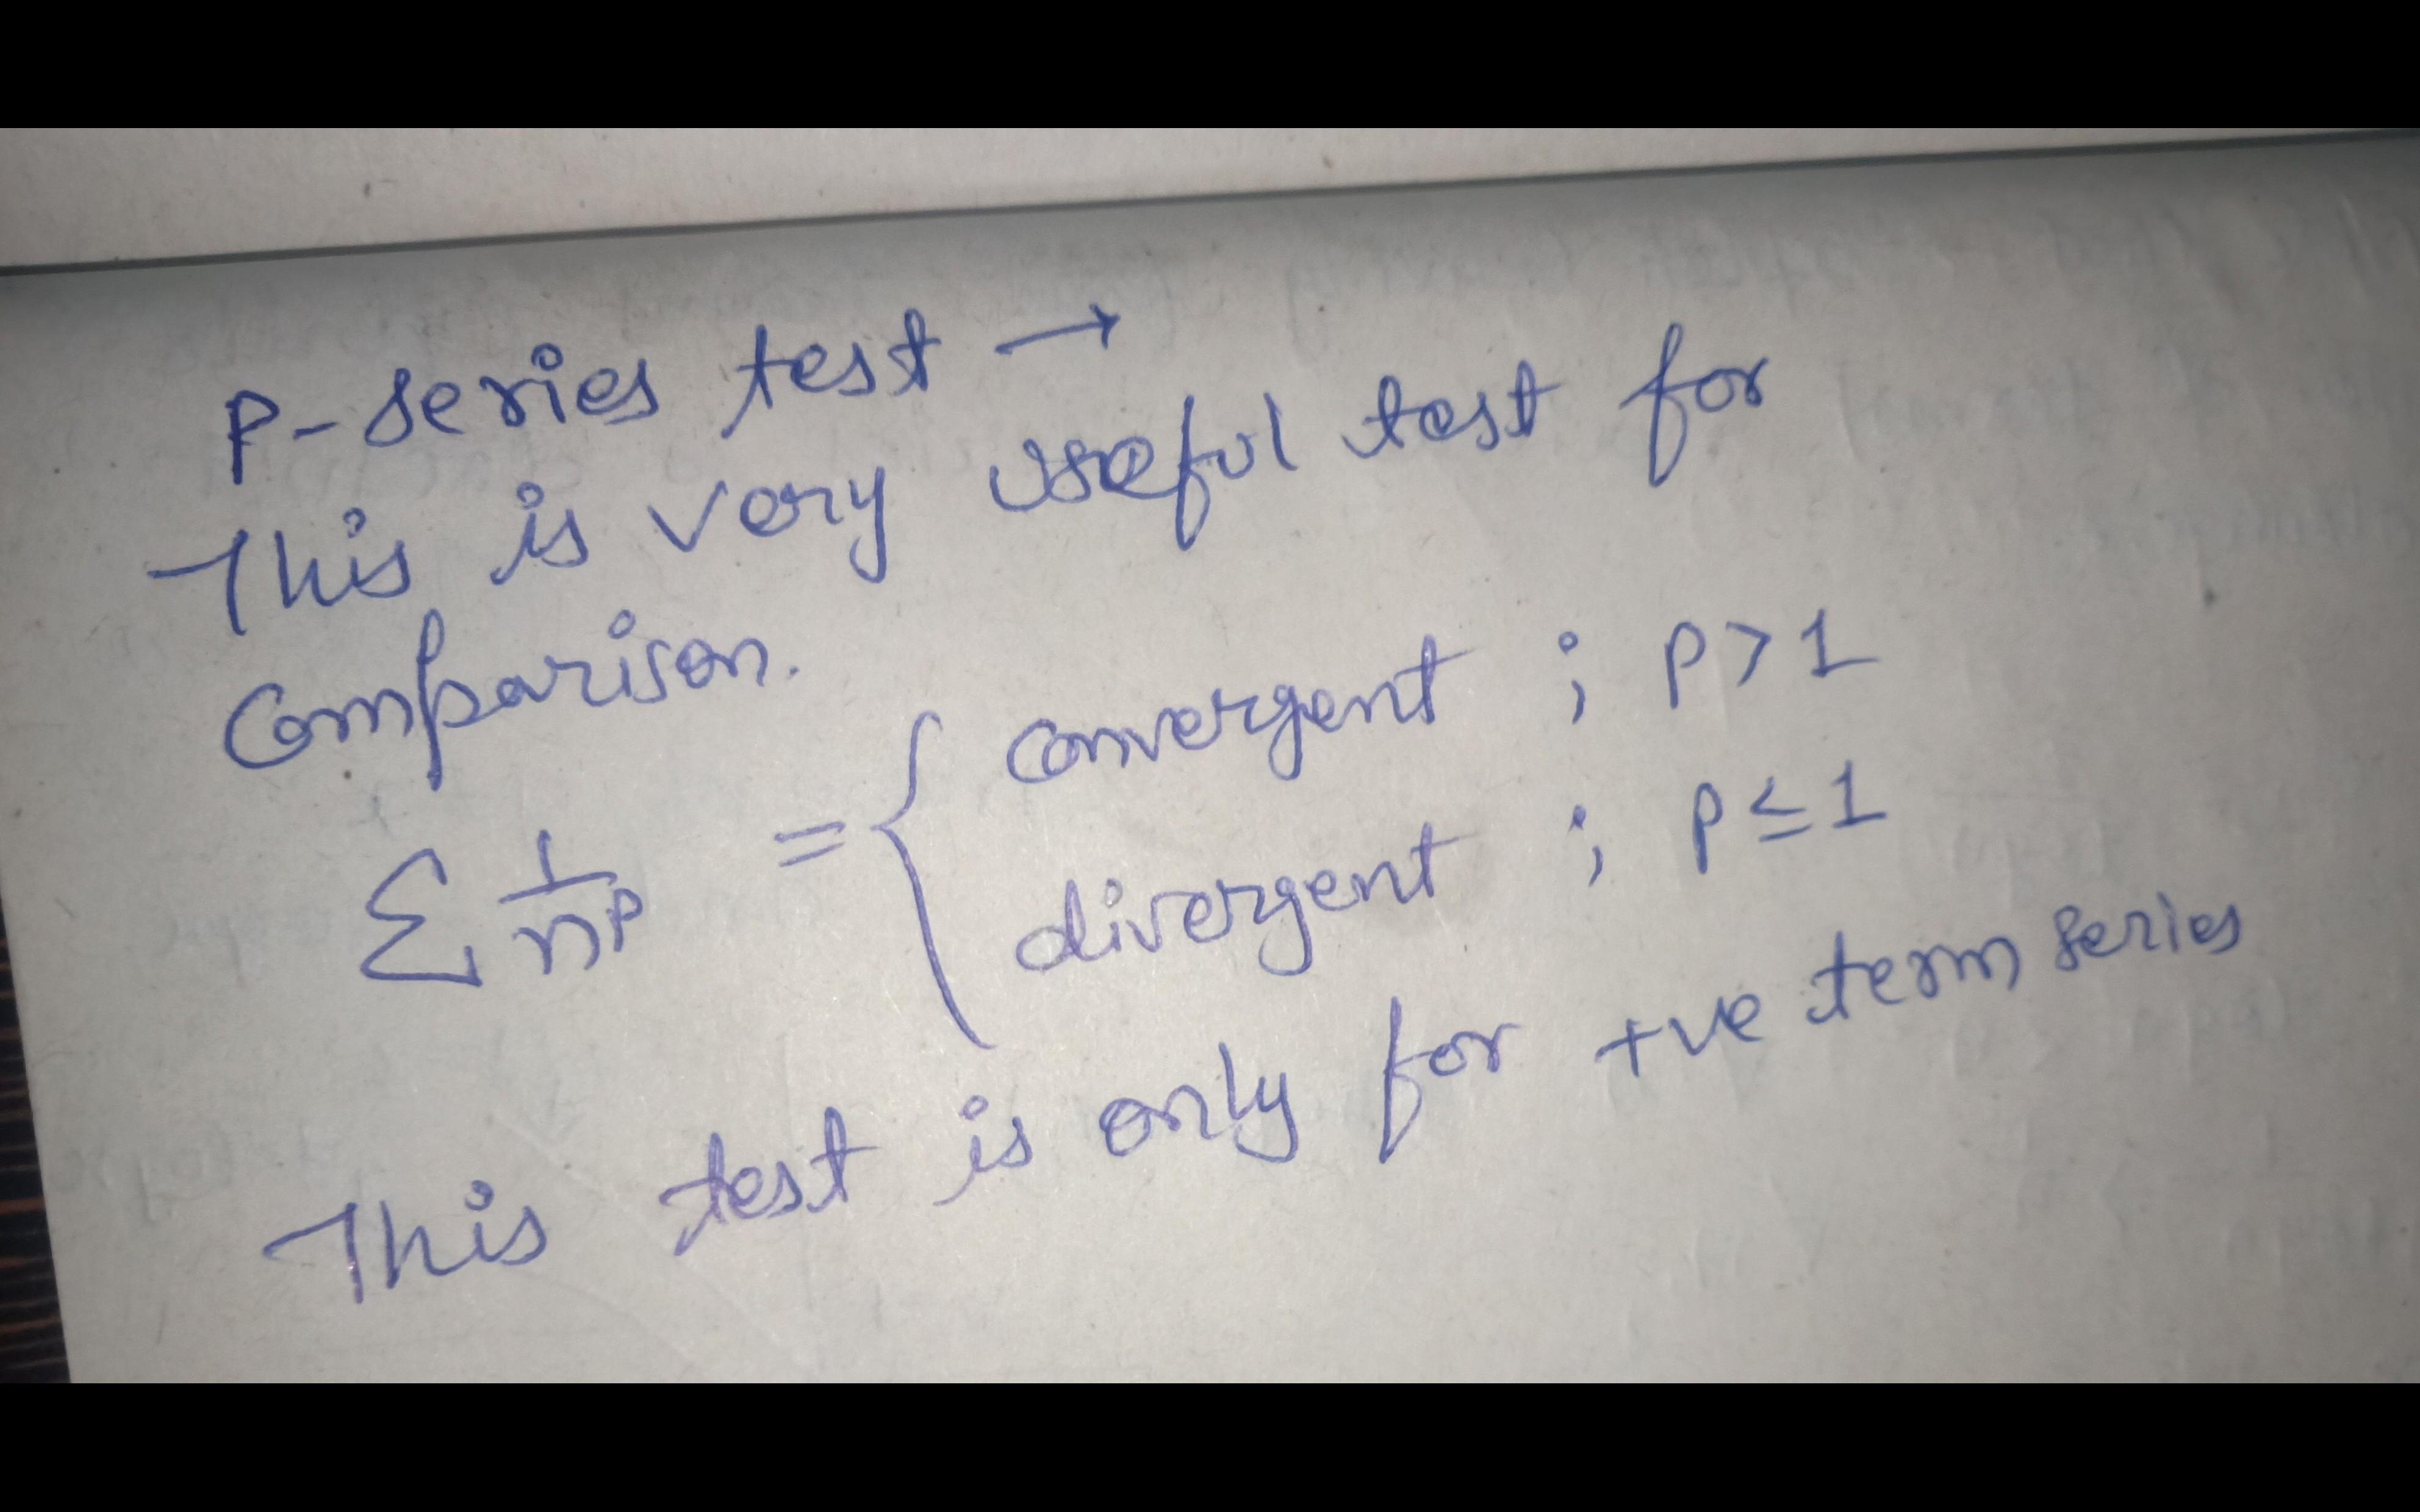 P-series test →
This is very useful test for
Comparison.
Σ 1/n^p = { convergent ; P > 1
divergent ; P ≤ 1
This test is only for +ve term series